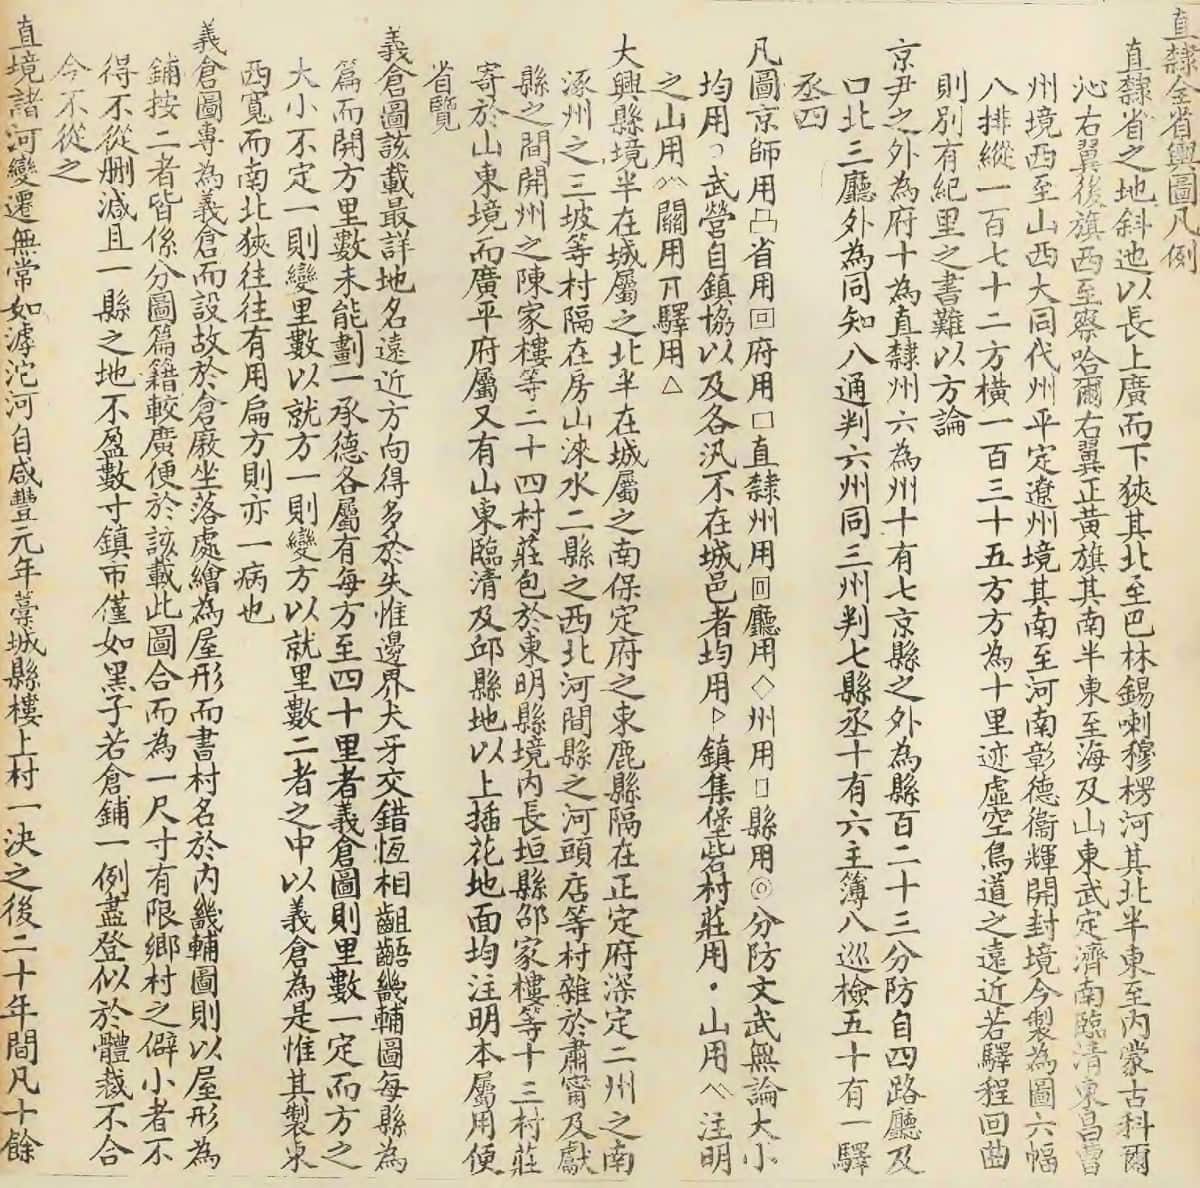 直隸全省輿圖凡例
直隸省之地斜迆以長上廣而下狹其北至巴林錫喇穆楞河其北半東至內蒙古科爾
沁右翼後旗西至察哈爾右翼正黃旗其南半東至海及山東武定濟南臨清東昌曹
州境西至山西大同代州平定遼州境其南至河南彰德衞輝開封境今製為圖六幅
八排縱一百七十二方橫一百三十五方方為十里迹虛空鳥道之遠近若驛程回曲
則別有紀里之書難以方論
京尹之外為府十為直隸州六為州十有七京縣之外為縣百二十三分防自四路廳及
口北三廳外為同知八通判六州同三州判七縣丞十有六主簿八巡檢五十有一驛
丞四
凡圖京師用凸省用回府用□直隸州用回廳用◇州用▯縣用◎分防文武無論大小
均用 武營自鎮協以及各汛不在城邑者均用▷鎮集堡砦村莊用・山用 注明
之山用 關用 驛用△
大興縣境半在城屬之北半在城屬之南保定府之束鹿縣隔在正定府深定二州之南
涿州之三坡等村隔在房山淶水二縣之西北河間縣之河頭店等村雜於肅甯及獻
縣之間開州之陳家樓等二十四村莊包於東明縣境內長垣縣邵家樓等十三村莊
寄於山東境而廣平府屬又有山東臨清及邱縣地以上插花地面均注明本屬用便
省覽
義倉圖該載最詳地名遠近方向得多於失惟邊界犬牙交錯恆相齟齬畿輔圖每縣為
篇而開方里數未能劃一承德各屬有每方至四十里者義倉圖則里數一定而方之
大小不定一則變里數以就方一則變方以就里數二者之中以義倉為是惟其製東
西寬而南北狹往往有用扁方則亦一病也
義倉圖專為義倉而設故於倉廒坐落處繪為屋形而書村名於內畿輔圖則以屋形為
鋪按二者皆係分圖篇籍較廣便於該載此圖合而為一尺寸有限鄉村之僻小者不
得不從刪減且一縣之地不盈數寸鎮市僅如黑子若倉鋪一例盡登似於體裁不合
今不從之
直境諸河變遷無常如滹沱河自咸豐元年藁城縣樓上村一決之後二十年間凡十餘